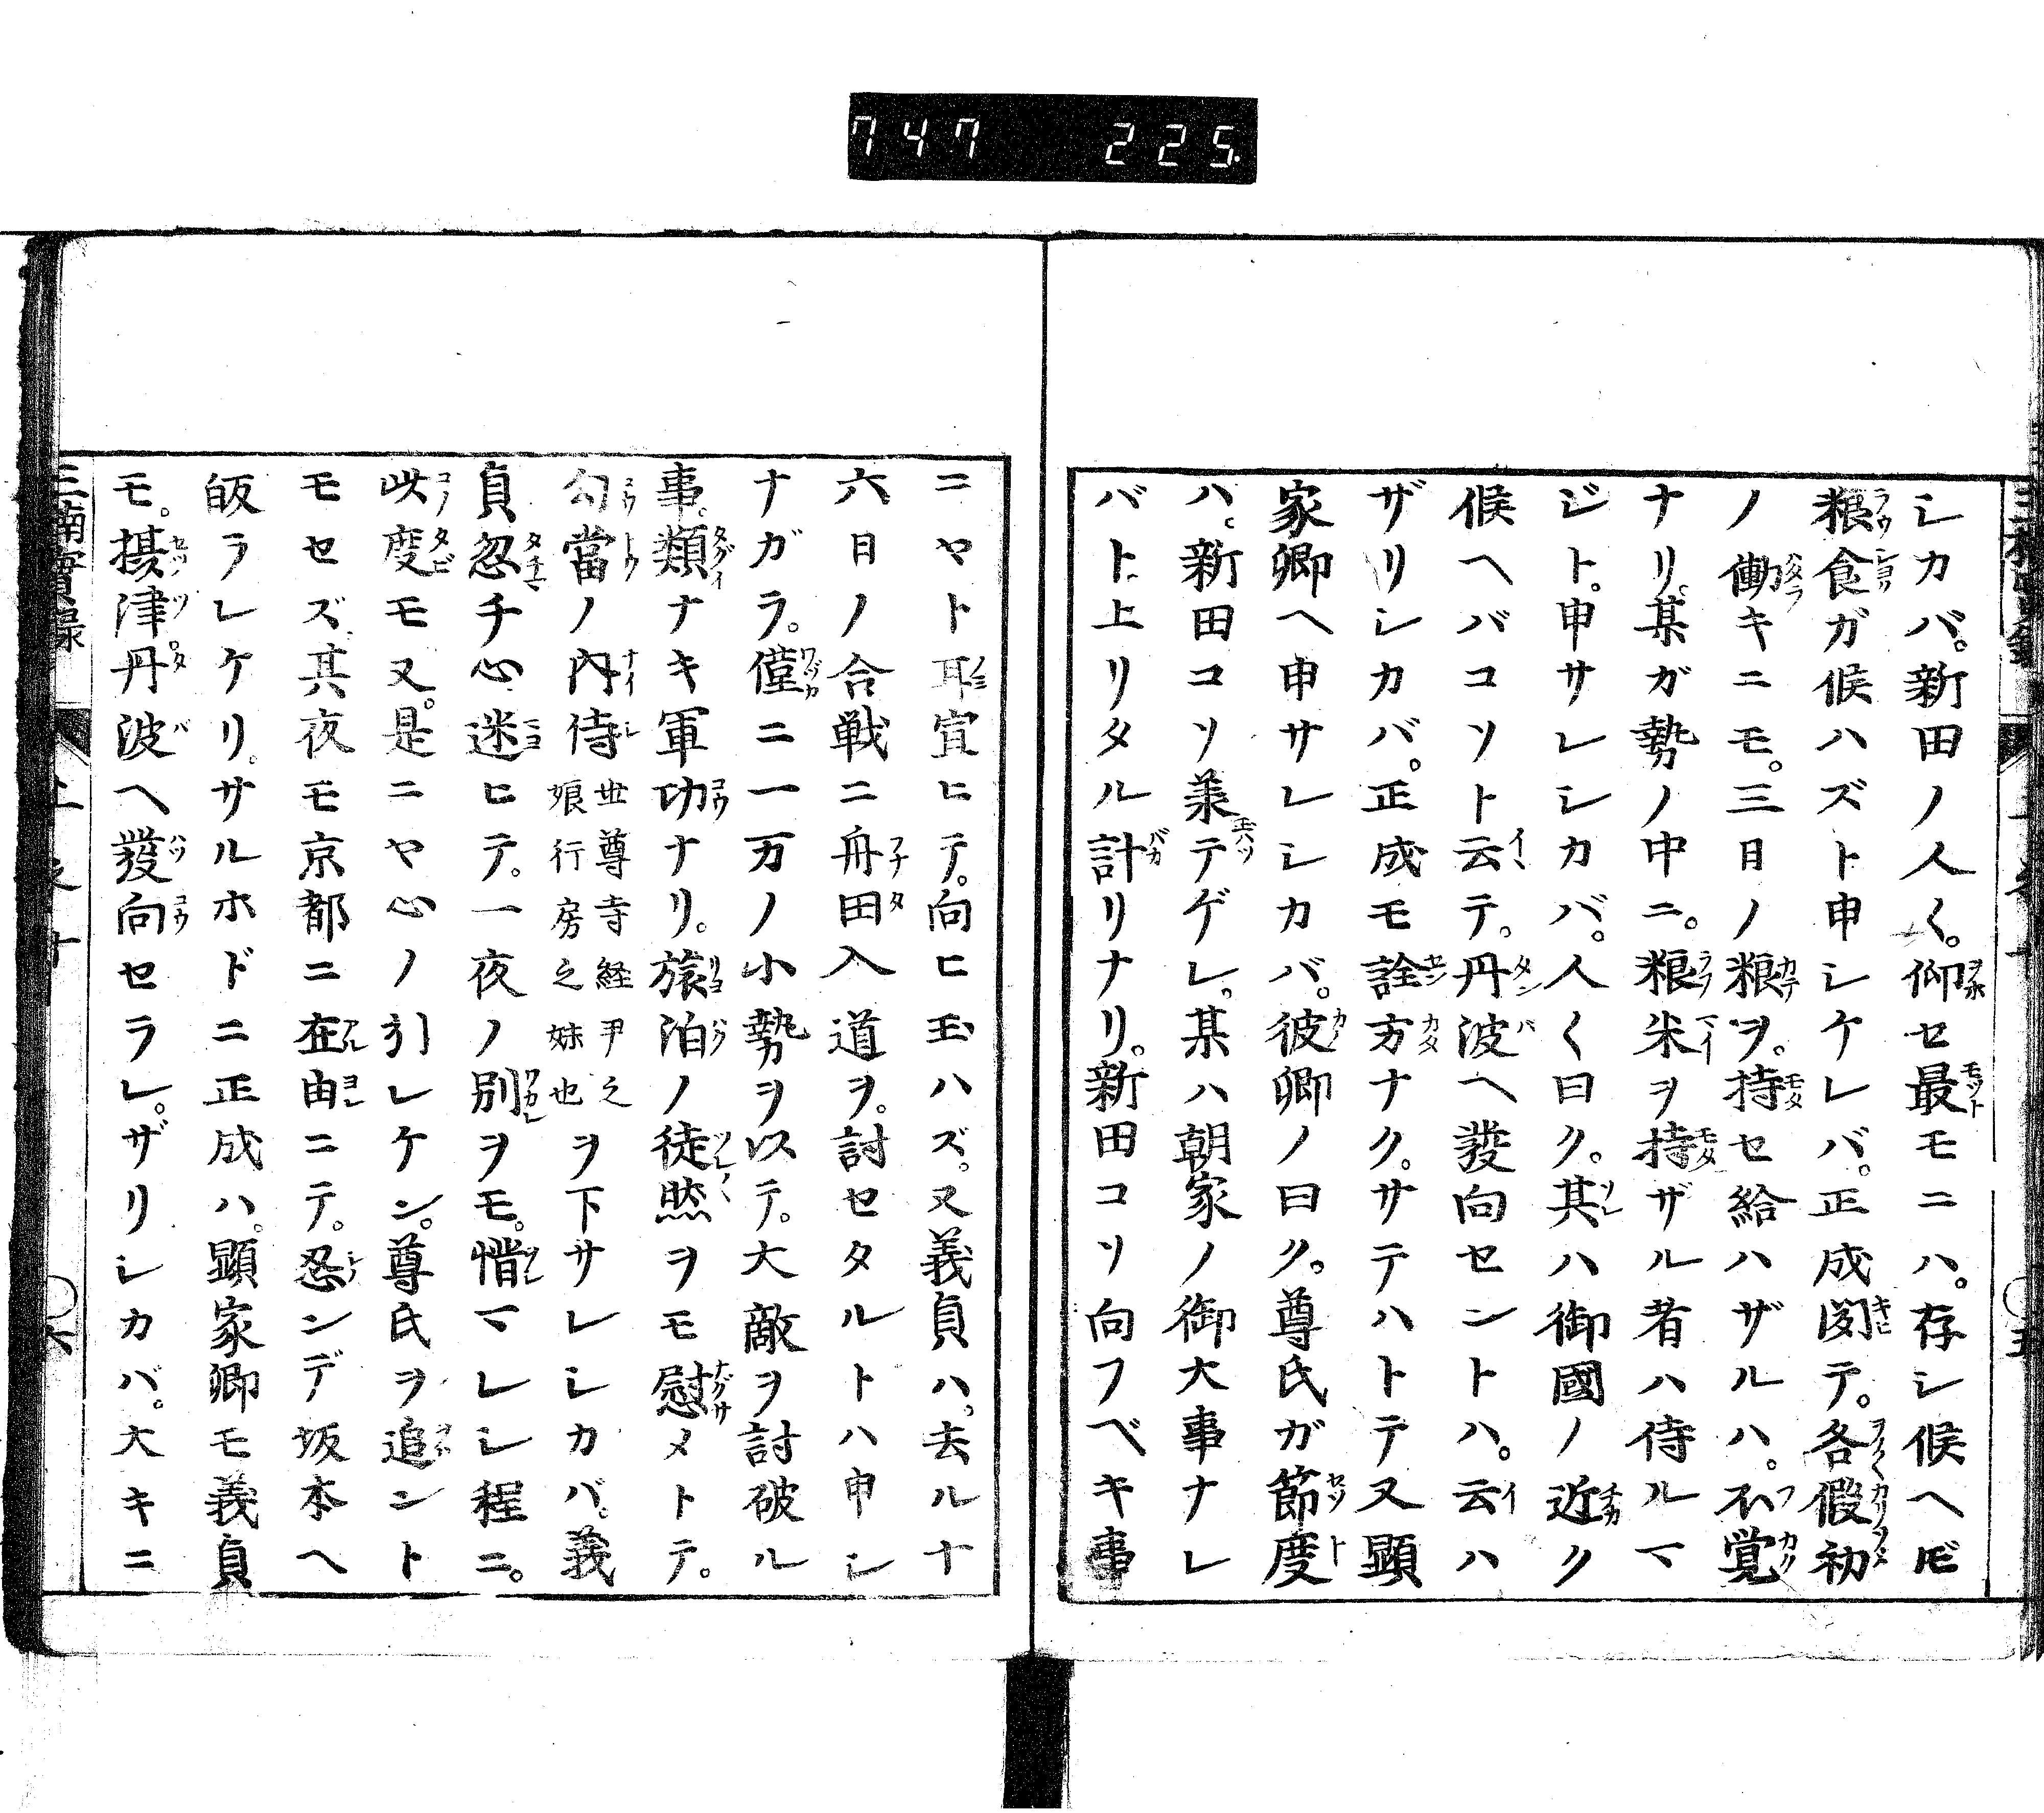 747 225.
シカバ。新田ノ人〱。仰セ最モニハ。存シ候ヘ𪜈
粮食ガ候ハズト申シケレバ。正成聞テ。各假初
ノ働キニモ。三日ノ粮ヲ。持セ給ハザルハ。不覚
ナリ。某ガ勢ノ中ニ。粮米ヲ持ザル者ハ侍ルマ
ジト。申サレシカバ。人〱曰ク。其ハ御國ノ近ク
候ヘバコソト云テ。丹波ヘ發向セントハ。云ハ
ザリシカバ。正成モ詮方ナク。サテハトテ又顕
家卿ヘ申サレシカバ。彼卿ノ曰ク。尊氏ガ節度
ハ。新田コソ羕テゲレ。某ハ朝家ノ御大事ナレ
バト上リタル計リナリ。新田コソ向フベキ事
ニヤト耳宜ヒテ。向ヒ玉ハズ。又義貞ハ。去ル十
六日ノ合戦ニ舟田入道ヲ。討セタルトハ申シ
ナガラ。僅ニ一万ノ小勢ヲ以テ。大敵ヲ討破ル
事。類ナキ軍功ナリ。旅泊ノ徒然ヲモ慰メトテ。
勾當ノ内侍世尊寺経尹之娘行房之妹也ヲ下サレシカバ。義
貞忽チ心迷ヒテ。一夜ノ別ヲモ。惜マレシ程ニ。
此度モ又。是ニヤ心ノ引レケン。尊氏ヲ追ント
モセズ。其夜モ京都ニ在由ニテ。忍ンデ坂本ヘ
皈ラレケリ。サルホドニ正成ハ。顕家卿モ義貞
モ。摂津丹波ヘ發向セラレ。ザリシカバ。大キニ